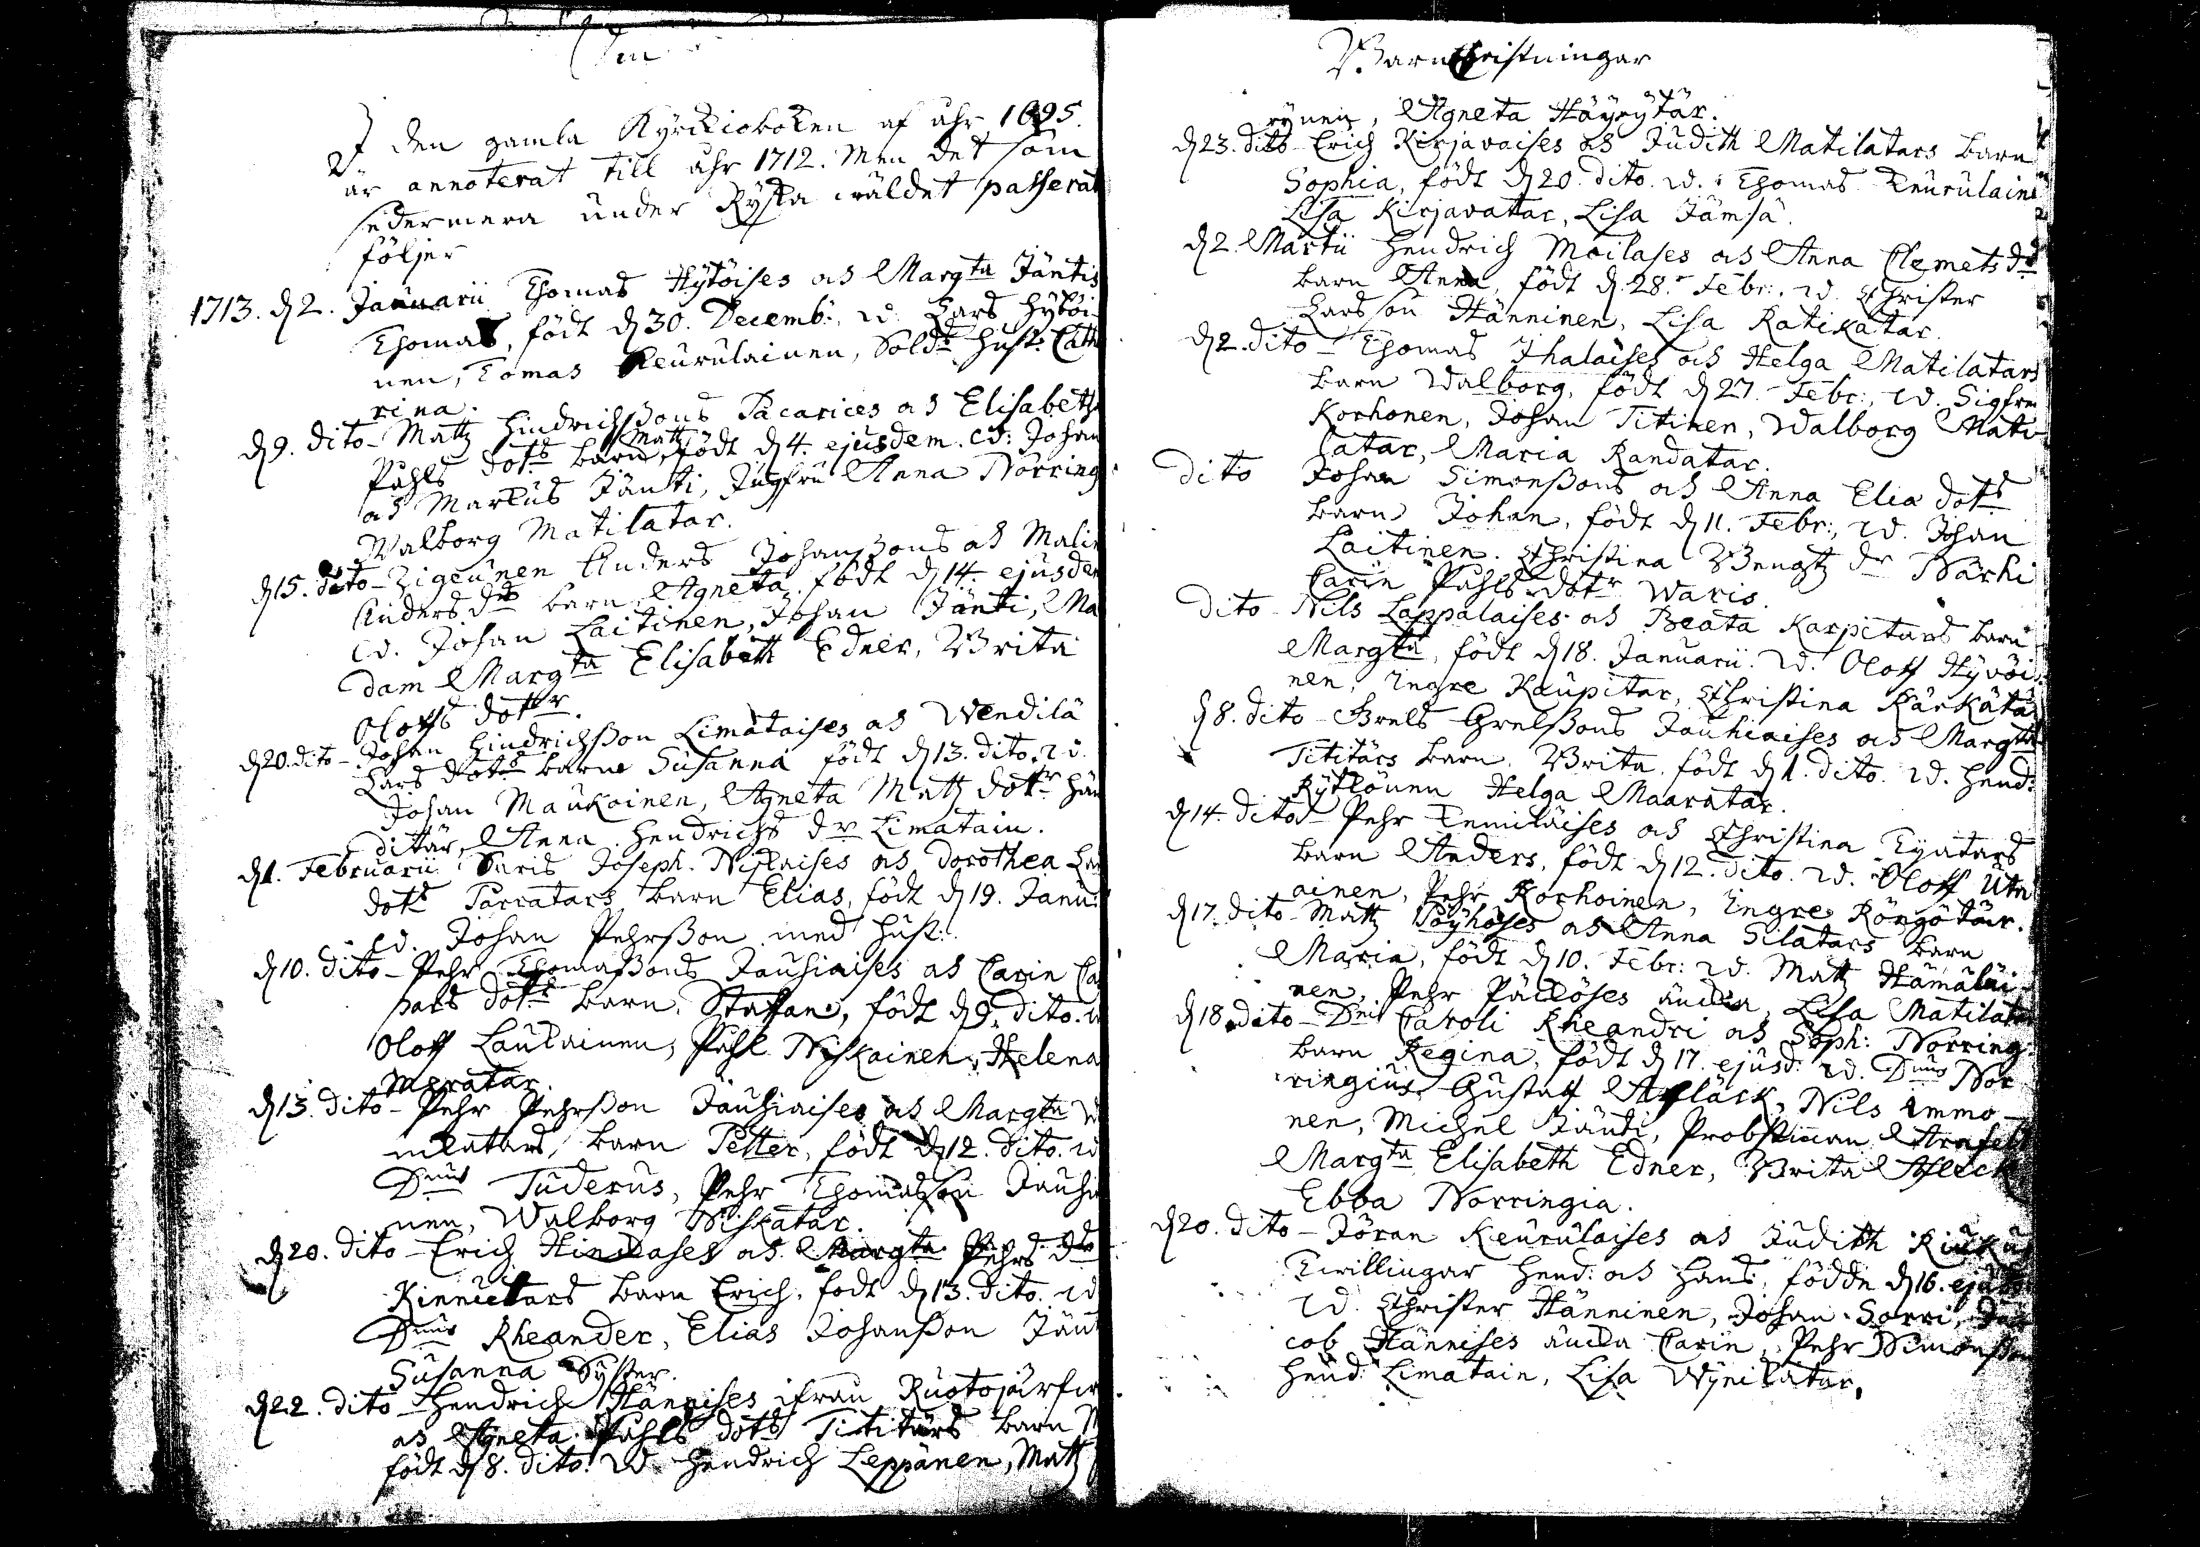 Om
I den gamla Kyrckioboken af åhr 1695.
är annoterat till åhr 1712. Men det som
sedermera under Ryska wäldet passerat
följer
1713. d. 2. Januarii Thomas Hytöises och Marg:ta Jäntis
Thomas, födt d 30. Decemb: w. Lars Hytöi-
nen, Tomas Keurulainen, Sold:s Hust: Cath
rina.
d 9. dito - Mattz Hindrichssons Pacarices och Elisabeth
Påhls dot:s barn, Mattz födt d 4. ejusdem. w: Johan
och Markus Jänti, Jungfru Anna Norring
Walborg Matilatar.
d 15. dito - Zigeunen Anders Johanssons och Malin
Anders d:rs barn Agneta födt d 14. ejusdem
w. Johan Laitinen, Johan Jänti, Ma
dam Marg:ta Elisabeth Edner, Brita
Oloffs dotter.
d 20. dito - Johan Hindrichsson Limataises och Wendilä
Lars dot:s barn Susanna födt d 13. dito. w.
Johan Maukoinen, Agneta Mattz dott:r Hän
ditär, Anna Hendrichs d:r Limatain.
d 1. Februarii Saris Joseph. Niskaises och Dorothea La
dot:s Parratars barn Elias, födt d 19. Janu:
w. Johan Pehrsson med Hust:
d 10. dito - Pehr Thomassons Jauhiaises och Carin Ca
pars dot:s barn, Staffan, födt d 9. dito. w
Oloff Laukainen, Påhl Niskainen, Helena
Mæratar.
d 13. dito - Pehr Pehrsson Jauhiaises och Marg:ta
mlatars, barn Petter, födt d 12. dito. w
D:nus Tuderus, Pehr Thomasson Jauhi
nen, Walborg Niskatar.
d 20. dito - Erich Hindases och Marg:ta Pehrs d:r
Kinnutars barn Erich, födt d 13. dito. w
D:nus Rheander, Elias Johansson Jänt
Susanna Syster.
d 22. dito - Hendrich Hännises ifrån Ruotojärfwi
och Agneta Påhls dot:s Titiitärs barn M
födt d 8. dito. w. Hendrich Leppänen, Mattz
Barnchristningar
rynen, Agneta Häyrytär.
d 23. dito Erich Kirjavaises och Judith Matilatars barn
Sophia, födt d 20. dito. w. Thomas Keurulaine
Lisa Kirjavatar, Lisa Jämsä.
d 2. Martii Hendrich Moilases och Anna Clemets d:r
barn Anna, födt d. 28. Febr:. w. Christer
Larsson Hänninen, Lisa Ratikatar.
d 2. dito - Thomas Ihalaises och Helga Matilatars
barn Walborg, födt d 27. Febr:, w. Sigfre
Korhonen, Johan Titinen, Walborg Mati-
latar, Maria Randatar.
dito Johan Simonssons och Anna Elia dot:s
barn Johan, födt d 11. Febr:, w. Johan
Laitinen. Christina Bengtz d:r Närhi
Carin Påhls dot:r Waris.
dito Nils Lappalaises och Beata Karpitars barn
Marg:ta, födt d 18. Januarii. w. Oloff Hyvöi-
nen, Ingre Kaupitar, Christina Kärkätä
d 8. dito - Grels Grelssons Jauhiaises och Marg:ta
Titiitärs barn, Brita, födt d 1. dito. w. Hend:
Rytkönen Helga Maaratar.
d 14. dito - Pehr Enniläises och Christina Tyatars
barn Anders, födt d 12. dito. w. Oloff Utri
ainen, Pehr Korhoinen, Ingre Köngötär.
d 17. dito - Mattz Pöyhöses och Anna Silatars barn
Maria, födt d 10. Febr: w. Mattz Hämäläi-
nen, Pehr Päcköses äncka, Lisa Matilatar
d 18. dito - D:ni Caroli Rheandri och Soph: Norring:
barn Regina, födt d 17. ejusd: w. D:nus Nor-
ringius, Gustaff Affläck, Nils Immo-
nen, Michel Jänti, Probstinnan Arnfelt
Marg:ta Elisabeth Edner, Brita Afleck
Ebba Norringia.
d 20. dito - Jöran Keurulaises och Judith Ruuku
Twillingar Hend: och Hans, födde d 16. ejusd:
w. Christer Hänninen, Johan Sorri, Ja
cob Hännises äncka Carin, Pehr Simonsson
Hend: Limatain, Lisa Wynikatar.